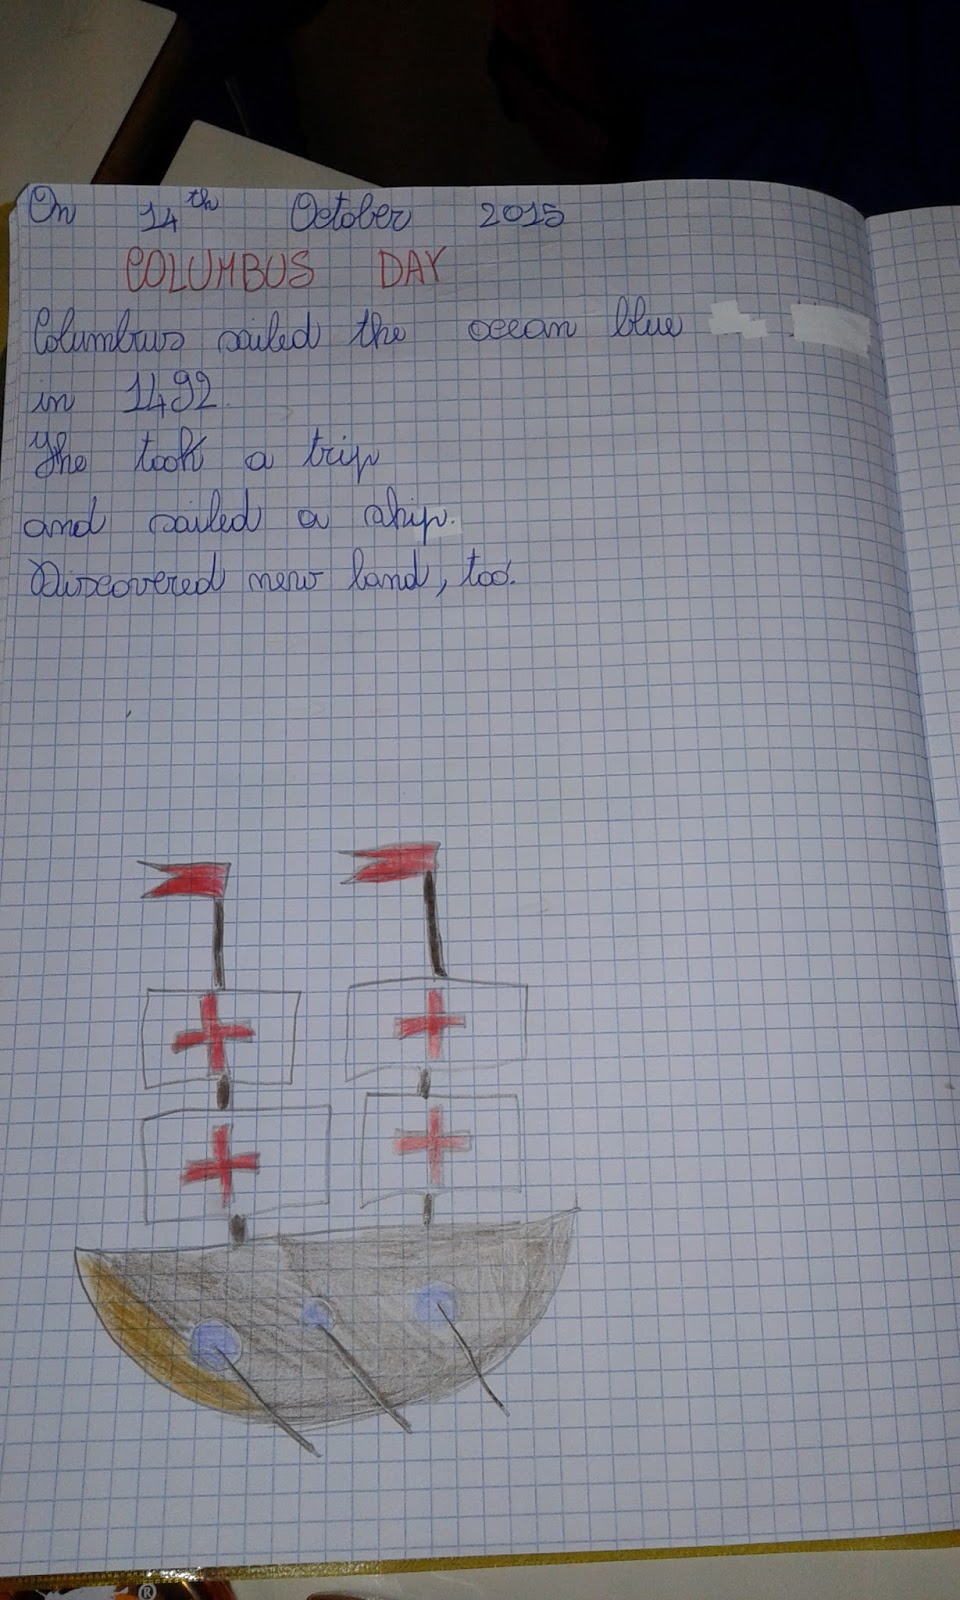 On 14th October 2015
COLUMBUS DAY
Columbus sailed the ocean blue
in 1492.
He took a trip
and sailed a ship.
Discovered new land, too.
®